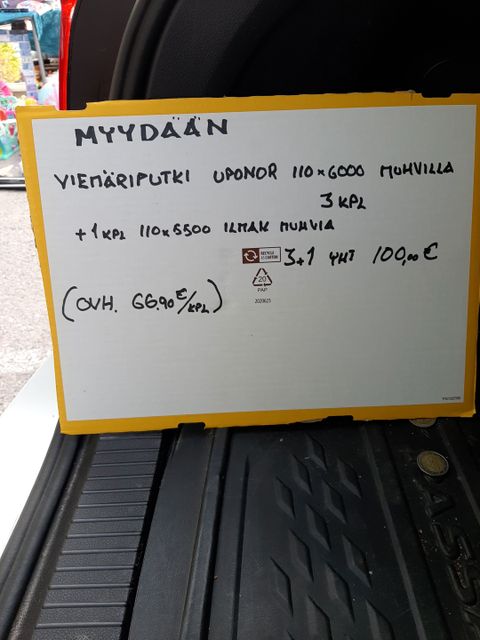 MYYDÄÄN
VIEMÄRIPUTKI UPONOR 110×6000 MUHVILLA
3 KPL
+1 KPL 110×5500 ILMAN MUHVIA
3+1 YHT 100,00 €
20
PAP
(OVH. 66,90 €/KPL)
ASSA